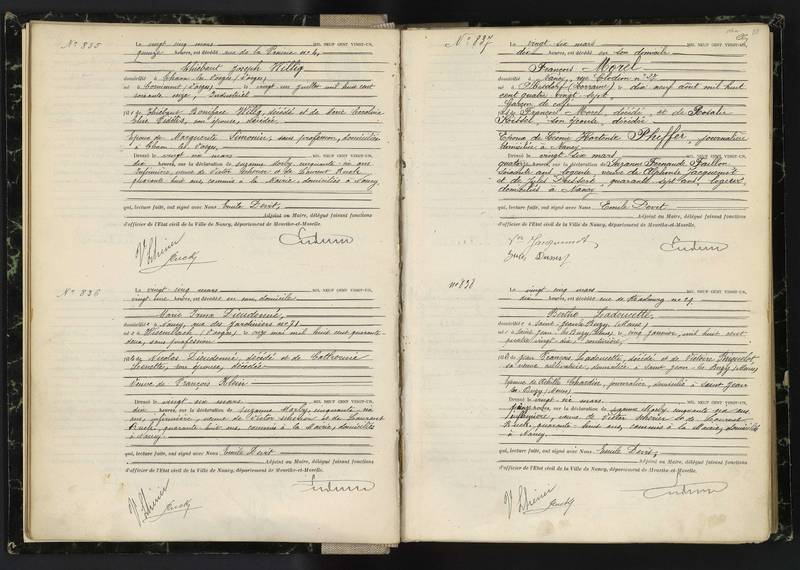 No 835
Le vingt cinq mars MIL NEUF CENT VINGT-UN,
quinze heures, est décédé rue de la Prairie no 4,
Thiébaut Joseph Willig
domicilié à Thaon les Vosges (Vosges)
né à Cornimont (Vosges) le vingt un juillet mil huit cent
soixante seize, Industriel
fils de Thiébaut Boniface Willig, décédé et de Anne Caroline
son épouse, décédée
Epoux de Marguerite Simonin, sans profession, domiciliée
à Thaon les Vosges.
Dressé le vingt six mars MIL NEUF CENT VINGT-UN,
dix heures, sur la déclaration de Suzanne Marly cinquante six ans
Infirmière, veuve de Victor Scherier et de Laurent Ruck,
quarante huit ans, commis à la Mairie, domiciliés à Nancy.
qui, lecture faite, ont signé avec Nous Emile Devit,
Adjoint au Maire, délégué faisant fonctions
d'officier de l'Etat civil de la Ville de Nancy, département de Meurthe-et-Moselle.
No 836
Le vingt cinq mars MIL NEUF CENT VINGT-UN,
vingt une heures, est décédée en son domicile
Marie Irma Dieudonné,
domiciliée à Nancy, rue des Jardiniers no 71
née à Wisembach (Vosges) le mai mil huit cent quarante
deux, sans profession
fille de Nicolas Dieudonné, décédé et de Catherine
son épouse, décédée
Veuve de François
Dressé le vingt six mars MIL NEUF CENT VINGT-UN,
dix heures, sur la déclaration de Suzanne Marly, cinquante six
ans, infirmière, veuve de Victor Scherier et de Laurent
Ruck, quarante huit ans, commis à la Mairie, domiciliés
à Nancy.
qui, lecture faite, ont signé avec Nous Emile Devit
Adjoint au Maire, délégué faisant fonctions
d'officier de l'Etat civil de la Ville de Nancy, département de Meurthe-et-Moselle.
No 837
Le vingt six mars MIL NEUF CENT VINGT-UN,
dix heures, est décédé en son domicile
François Morel
domicilié à Nancy, rue Clodion no 37
né à (Lorraine) le dix neuf août mil huit
cent quatre vingt sept,
Garçon de café
fils de François Morel, décédé et de Rosalie
son épouse, décédée
Epoux de Léonie Hortense Pheffer, journalière
domiciliée à Nancy
Dressé le vingt six mars MIL NEUF CENT VINGT-UN,
quatorze heures, sur la déclaration de Suzanne Fernande
soixante ans, logeuse, veuve de Alphonse Jacquemot
et de Jules quarante sept ans, logeur,
domiciliés à Nancy
qui, lecture faite, ont signé avec Nous Emile Devit
Adjoint au Maire, délégué faisant fonctions
d'officier de l'Etat civil de la Ville de Nancy, département de Meurthe-et-Moselle.
Vve Jacquemot
no 838
Le vingt cinq mars MIL NEUF CENT VINGT-UN,
dix heures, est décédée rue de Strasbourg no 29
Berthe Ladoucette,
domiciliée à Saint Jean les Buzy (Meuse)
née à Saint Jean les Buzy (Meuse) le cinq janvier, mil huit cent
quatre vingt dix, couturière,
fille de François Ladoucette, décédé et de Victoire
sa veuve domiciliée à Saint Jean les Buzy (Meuse)
Epouse de Achille Chardin, journalier, domicilié à Saint Jean
les Buzy (Meuse)
Dressé le vingt six mars MIL NEUF CENT VINGT-UN,
heures, sur la déclaration de Suzanne Marly cinquante six ans
infirmière, veuve de Victor Scherier et de Laurent
Ruck, quarante huit ans, commis à la Mairie, domiciliés
à Nancy.
qui, lecture faite, ont signé avec Nous Emile Devit,
Adjoint au Maire, délégué faisant fonctions
d'officier de l'Etat civil de la Ville de Nancy, département de Meurthe-et-Moselle.